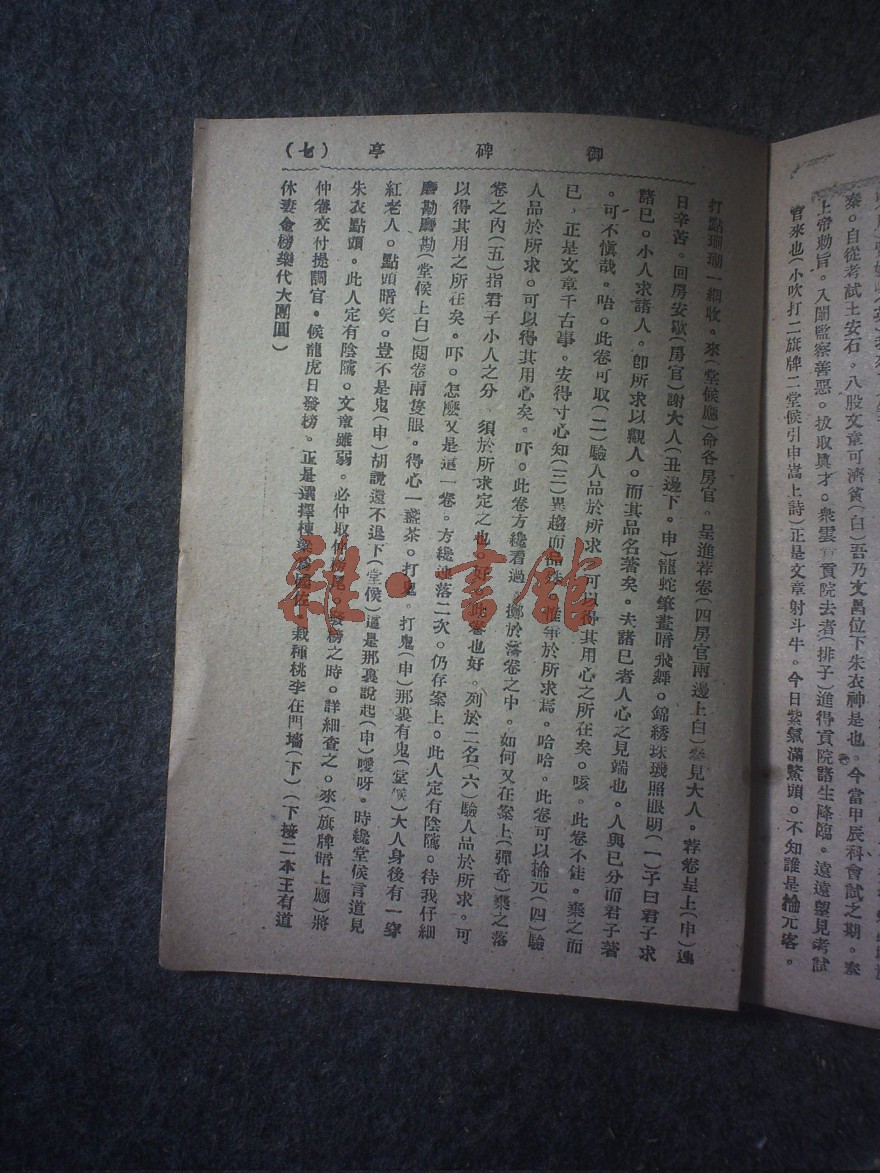 奏。自從考試士安石。八股文章可濟貧(白)吾乃文昌位下朱衣神是也。今當甲辰科會試之期。奉
上帝勅旨。入闈監察善惡。拔取眞才。衆雲童貢院去者(排子)進得貢院諸生降臨。遠遠望見考試
官來也(小吹打二旗牌二堂候引申嵩上詩)正是文章射斗牛。今日紫氣滿鰲頭。不知誰是掄元客。
御碑亭
(七)
打點珊瑚一網收。來(堂候應)命各房官。呈進荐卷(四房官兩邊上白)叅見大人。荐卷呈上(申)連
日辛苦。回房安歇(房官)謝大人(丑邊下。申)龍蛇筆畫暗飛舞。錦綉珠璣照眼明(一)子曰君子求
諸已。小人求諸人。卽所求以觀人。而其品名著矣。夫諸已者人心之見端也。人與已分而君子著
。可不愼哉。唔。此卷可取(二)驗人品於所求。可以得其用心之所在矣。咳。此卷不佳。棄之而
已，正是文章千古事。安得寸心知(三)異趨而品 於所求焉。哈哈。此卷可以掄元(四)驗
人品於所求。可以得其用心矣。吓。此卷方纔看過。擲於落卷之中。如何又在案上(彈奇)棄之落
卷之內(五)指君子小人之分　須於所求定之也。好。此卷也好。列於二名(六)驗人品於所求。可
以得其用之所在矣。吓。怎麽又是這一卷。方纔 落二次。仍存案上。此人定有陰隲。待我仔細
磨勘磨勘(堂候上白)閱卷兩隻眼。得心一盞茶。打鬼。打鬼(申)那裏有鬼(堂候)大人身後有一穿
紅老人。點頭暗笑。豈不是鬼(申)胡說還不退下(堂候)這是那裏說起(申)噯呀。時纔堂候言道見
朱衣點頭。此人定有陰隲。文章雖弱。必仲取 榜尾。發榜之時。詳細查之。來(旗牌暗上應)將
仲卷交付提調官。候龍虎日發榜。正是選擇棟樑 國佐。栽種桃李在門墻(下)(下接二本王有道
休妻金榜樂代大團圓)
雜·書館